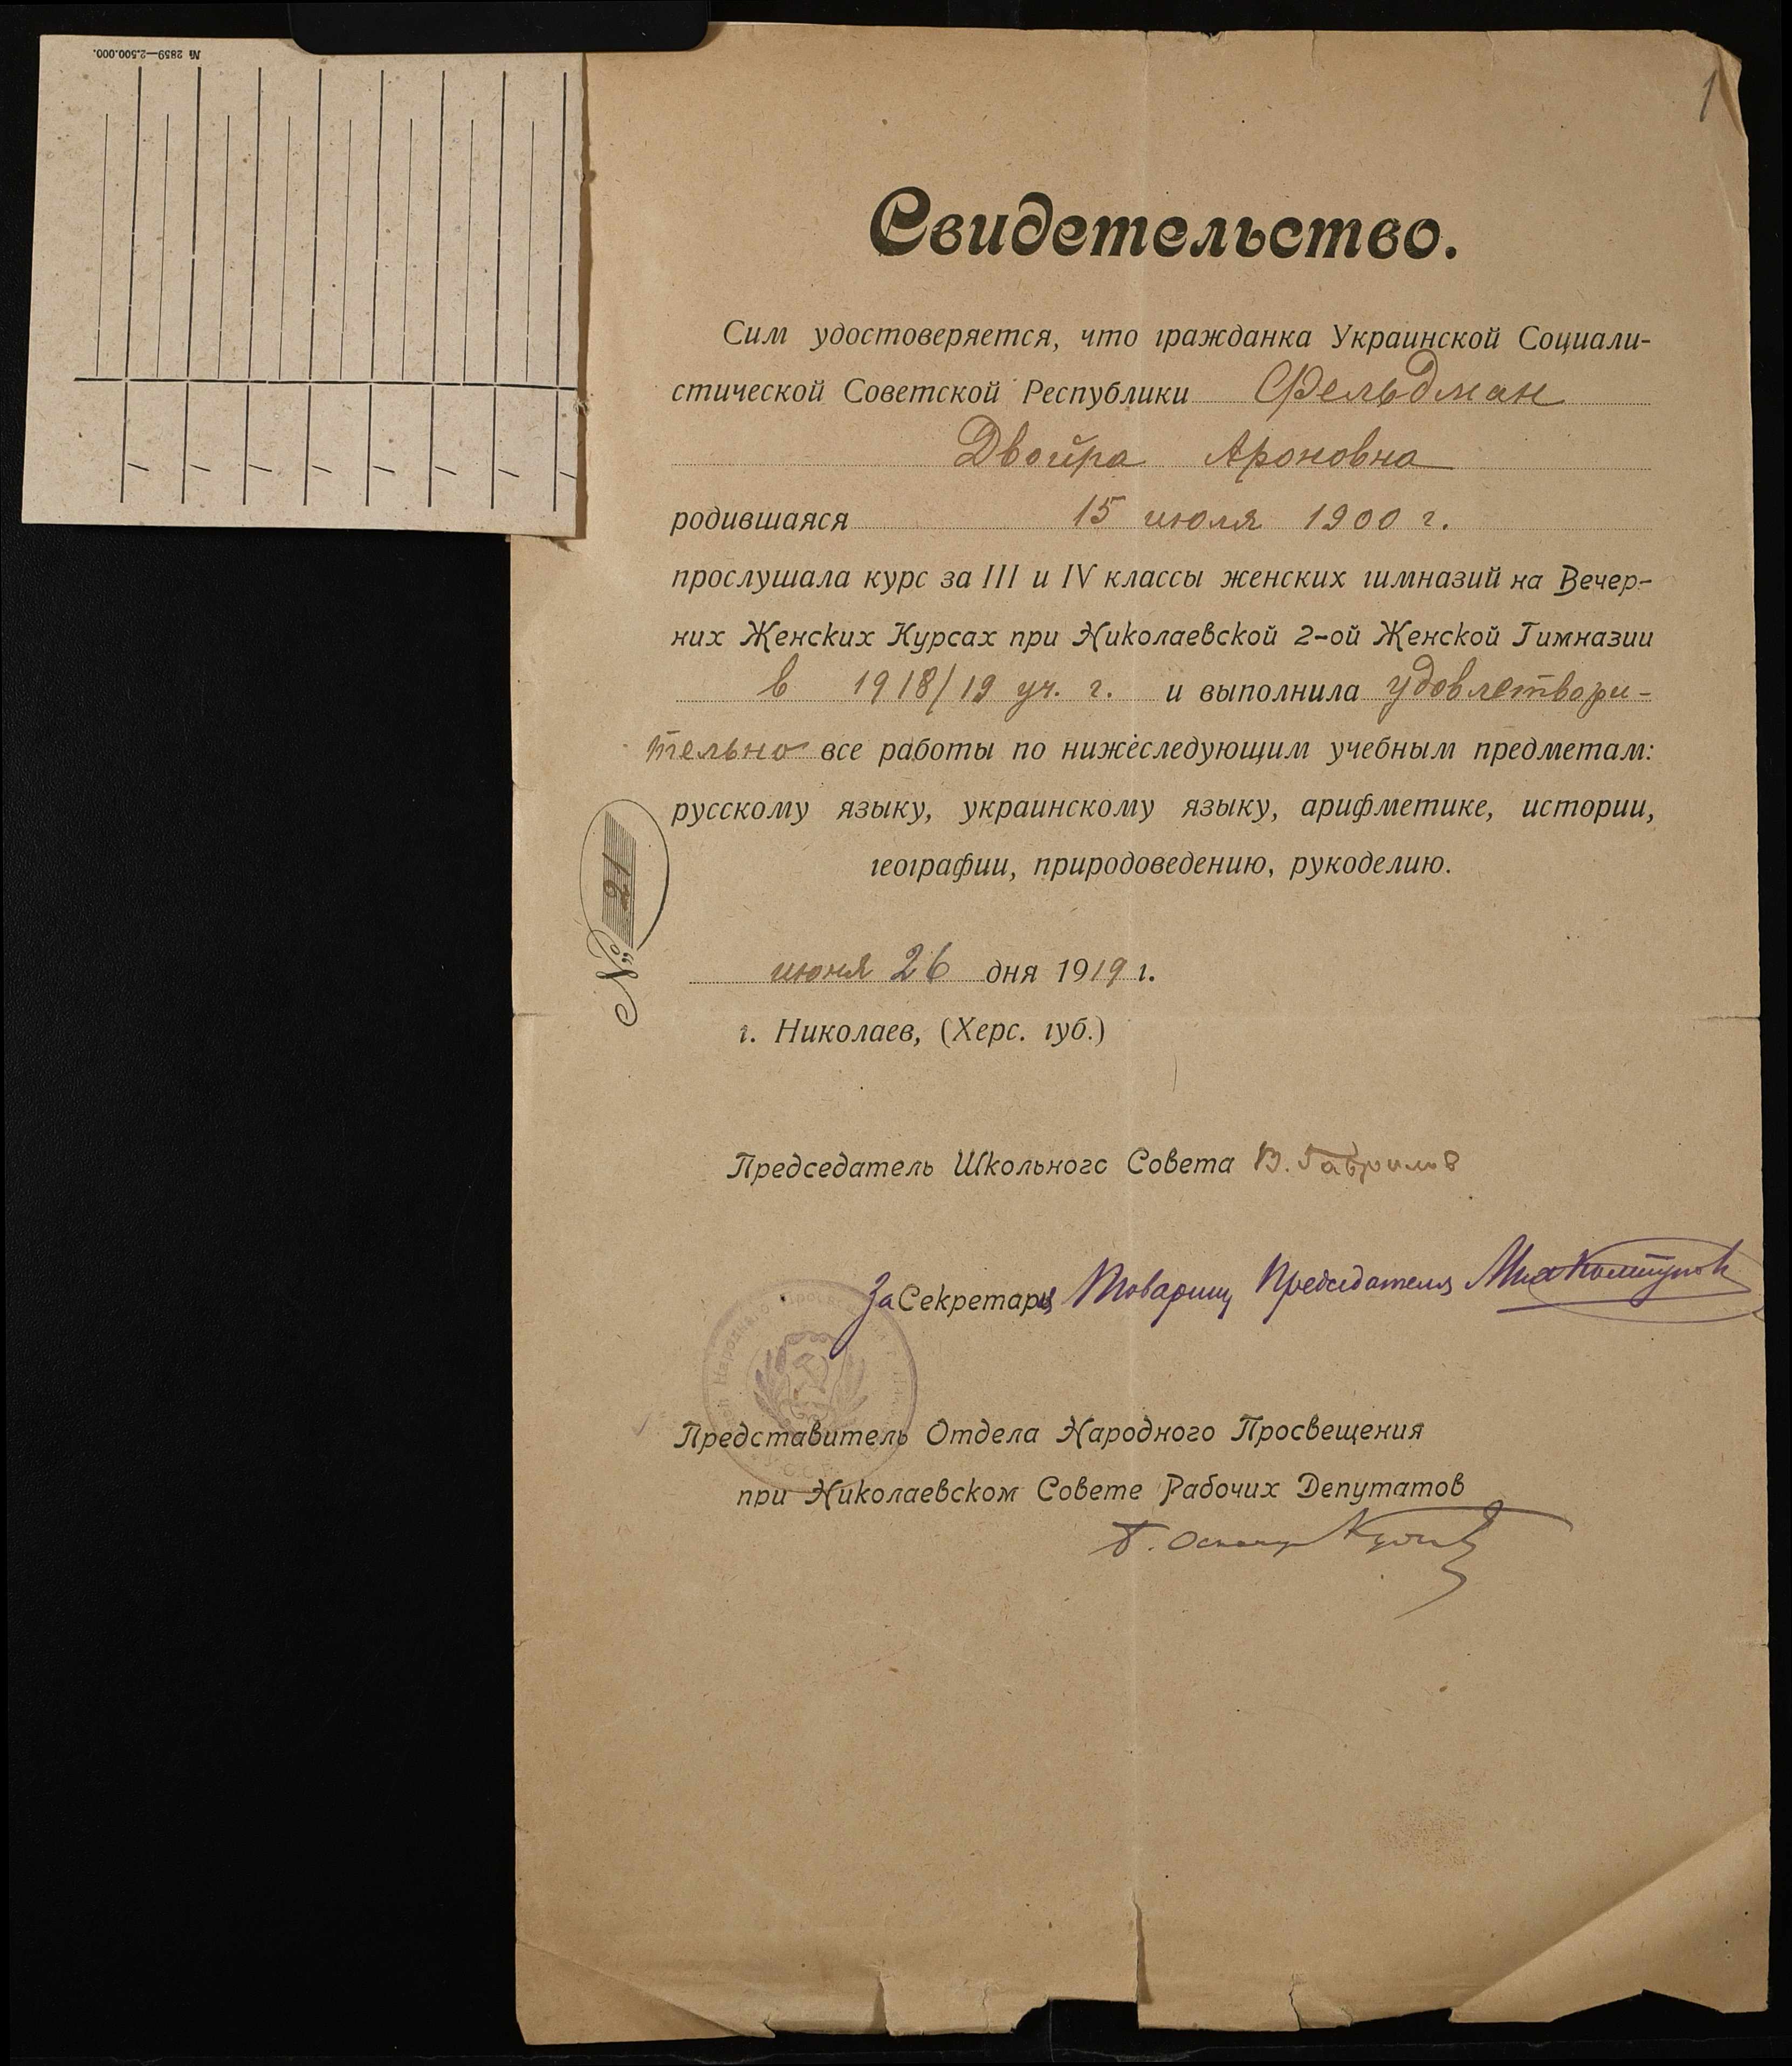 № 2859—2.500.000.
1
Свидетельство.
Сим удостоверяется, что гражданка Украинской Социали-
стической Советской Республики Фельдман
Двойра Ароновна
родившаяся 15 июля 1900 г.
прослушала курс за III и IV классы женских гимназий на Вечер-
них Женских Курсах при Николаевской 2-ой Женской Гимназии
в 1918/19 уч. г. и выполнила удовлетвори-
тельно все работы по нижеследующим учебным предметам:
русскому языку, украинскому языку, арифметике, истории,
географии, природоведению, рукоделию.
№ 21
июня 26 дня 1919 г.
г. Николаев, (Херс. губ.)
Председатель Школьного Совета В. Гаврилов
За Секретаря Товарищ Председателя
Народного Просвещения
Представитель Отдела Народного Просвещения
при Николаевском Совете Рабочих Депутатов